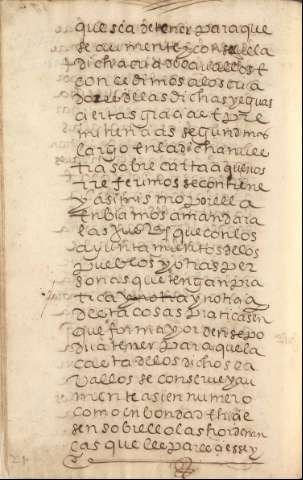 que sea de tener para que
se aumente y conserve la
dicha cria de cavallos e
concedimos a los cria
dores de las dichas yeguas
ciertas gracias e pre
minencias segun mas
largo en la dicha nuestra
carta a que nos
referimos se contiene
y asimismo por ella
enbiamos a mandar a
las que con los
ayuntamientos de los
pueblos y otras per
sonas que tengan pra
tica y notia y notiçia
de cosas praticasen
que forma y orden se po
dria tener para que la
casta de los dichos ca
vallos se conserve y au
mente asi en numero
como en bondad e hiçie
sen sobre ello las hordenan
ças que le pareçiesse y